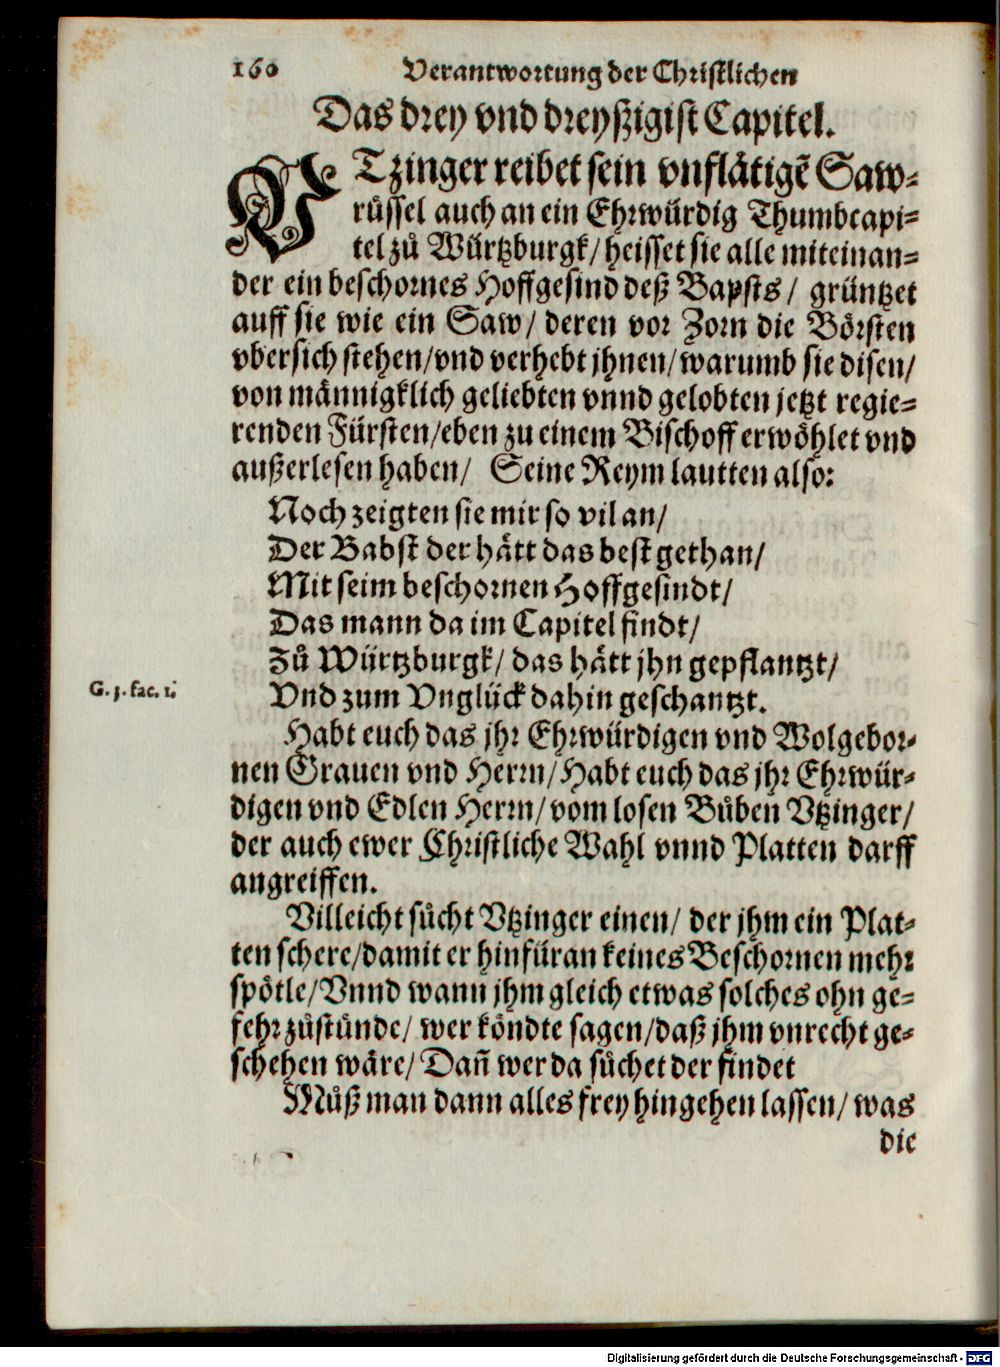 160 Verantwortung der Christlichen
Das drey vnd dreyßigist Capitel.
VTzinger reibet sein vnflätigẽ Saw-
rüssel auch an ein Ehrwürdig Thumbcapi-
tel zů Würtzburgk/ heisset sie alle miteinan-
der ein beschornes Hoffgesind deß Bapsts/ grüntzet
auff sie wie ein Saw/ deren vor Zorn die Börsten
vbersich stehen/vnd verhebt jhnen/warumb sie disen/
von männigklich geliebten vnnd gelobten jetzt regie-
renden Fürsten/eben zu einem Bischoff erwöhlet vnd
außerlesen haben/ Seine Reym lautten also:
Noch zeigten sie mir so vil an/
Der Babst der hätt das best gethan/
Mit seim beschornen Hoffgesindt/
Das mann da im Capitel findt/
Zů Würtzburgk/ das hätt jhn gepflantzt/
G. 3. fac. 1. Vnd zum Vnglück dahin geschantzt.
Habt euch das jhr Ehrwürdigen vnd Wolgebor-
nen Grauen vnd Herrn/Habt euch das jhr Ehrwür-
digen vnd Edlen Herrn/vom losen Bůben Vtzinger/
der auch ewer Christliche Wahl vnnd Platten darff
angreiffen.
Villeicht sůcht Vtzinger einen/ der jhm ein Plat-
ten schere/damit er hinfüran keines Beschornen mehr
spötle/Vnnd wann jhm gleich etwas solches ohn ge-
fehr zůstünde/ wer köndte sagen/daß jhm vnrecht ge-
schehen wäre/ Dañ wer da sůchet der findet
Můß man dann alles frey hingehen lassen/ was
die
Digitalisierung gefördert durch die Deutsche Forschungsgemeinschaft - DFG